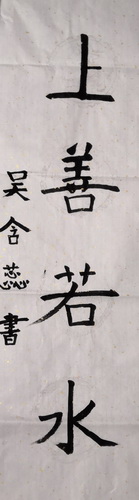 上善若水
吴含蕊書